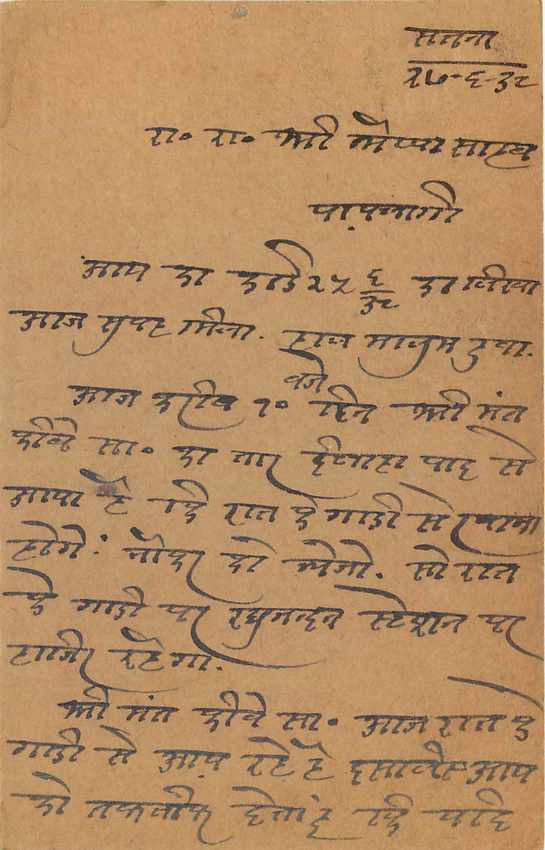 सतना
२७-६-३८
रा० रा० श्री भैय्या साहब
आप का कार्ड २५ ६/३८ का लीखा
आज सुबह मीला. हाल मालुम हुवा.
आज करीब १० बजे दिन श्री मंत
कीबे सा० का तार ईलाहाबाद से
आया है कि रात के गाडी से रवाना
होंगे. नौकर को भेजो. सो रात
के गाडी पर रघुनन्दन स्टेशन पर
हाजीर रहेगा.
श्री मंत कीबे सा० आज रात के
गाडी से आ रहे है इसलीए आप
को तकलीफ देता हूं कि यदि